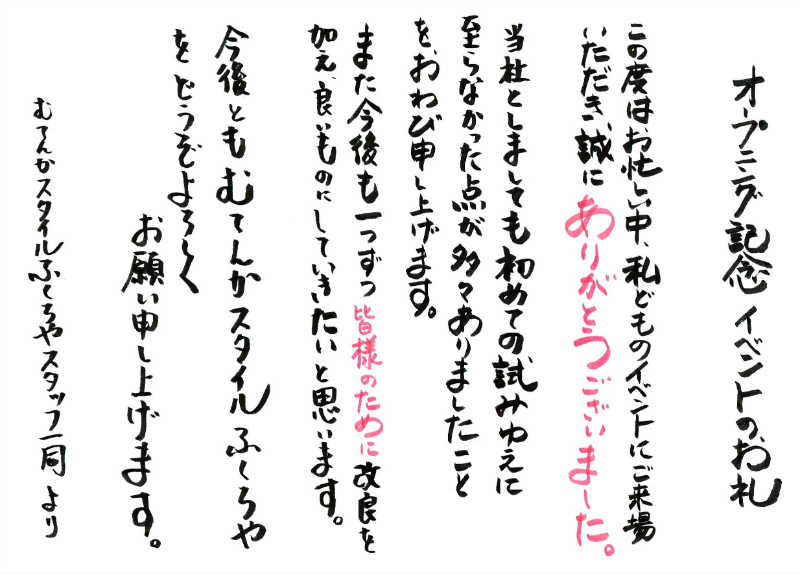 オープニング記念イベントのお礼
この度はお忙しい中、私どものイベントにご来場
いただき、誠にありがとうございました。
当社としましても初めての試みゆえに
至らなかった点が多々ありましたこと
を、おわび申し上げます。
また今後も一つずつ皆様のために改良を
加え、良いものにしていきたいと思います。
今後ともむてんかスタイルふくろや
をどうぞよろしく
お願い申し上げます。
むてんかスタイルふくろやスタッフ一同より